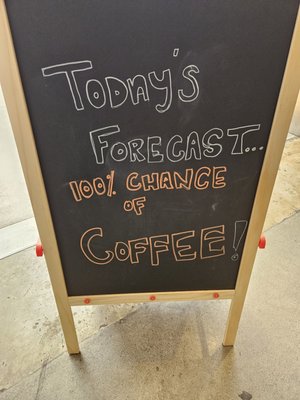 TODAY'S
FORECAST...
100% CHANCE
OF
COFFEE!